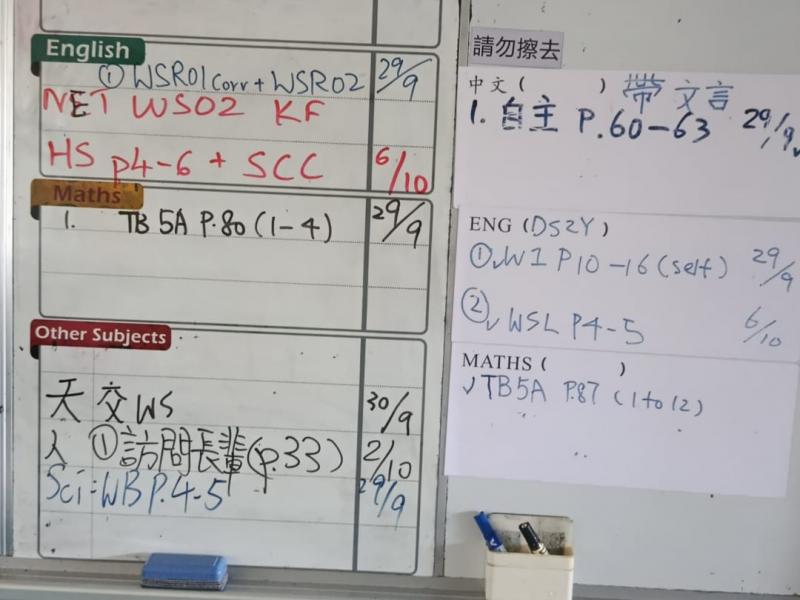 English
① WSR01 corr + WSR02 29/9
NET WS02 KF
HS p4-6 + SCC 6/10
Maths
1. TB 5A P.80 (1-4) 29/9
Other Subjects
天 交 WS 30/9
人 ① 訪問長輩 (p.33) 2/10
Sci: WB P.4-5 29/9
請勿擦去
中文 ( ) 帶 文言
1. 自主 P.60-63 29/9 ✓
ENG ( DS2Y )
① ✓ WI P10-16 (self) 29/9
② ✓ WSL P4-5 6/10
MATHS ( )
✓ TB 5A P.87 (1 to 12)